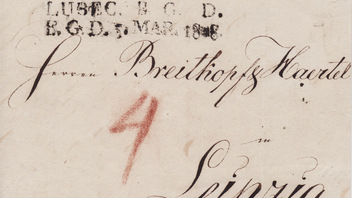 LUBEC. B. G. D.
E. G. D. 5. MAR. 1818.
Herren Breitkopf & Haertel
4
in
Leipzig